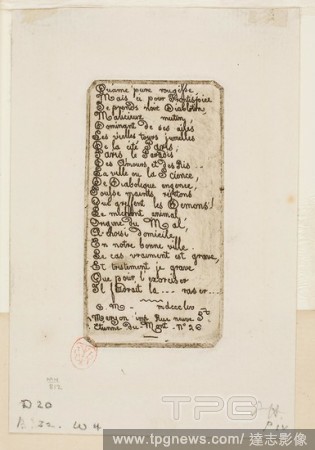 Qu'ame pure rougisse
Mais ici pour Frontispice
Je prends noir Diablotin,
Malicieux mutin,
Domin nt de ses ailes
Les vieilles tours jumelles
De la cité Paris,
Paris, le Paradis
Des Amours, et des Ris...
La ville ou la Science,
De Diabolique engence,
Pousse maints rejetons
Qui greffent les Demons!
Le méchant animal,
Origine du Mal,
A choisi domicile
En notre bonne ville.
Le cas vraiment est grave,
Et tristement je grave
Que pour l'exorciser
Il faudrait la .... raser...
C. M - mdcccliv
Meryon imp Rue neuve St
Etienne du Mont - No 26
D 20
W H
TPG
www.tpgnews.com | 達志影像